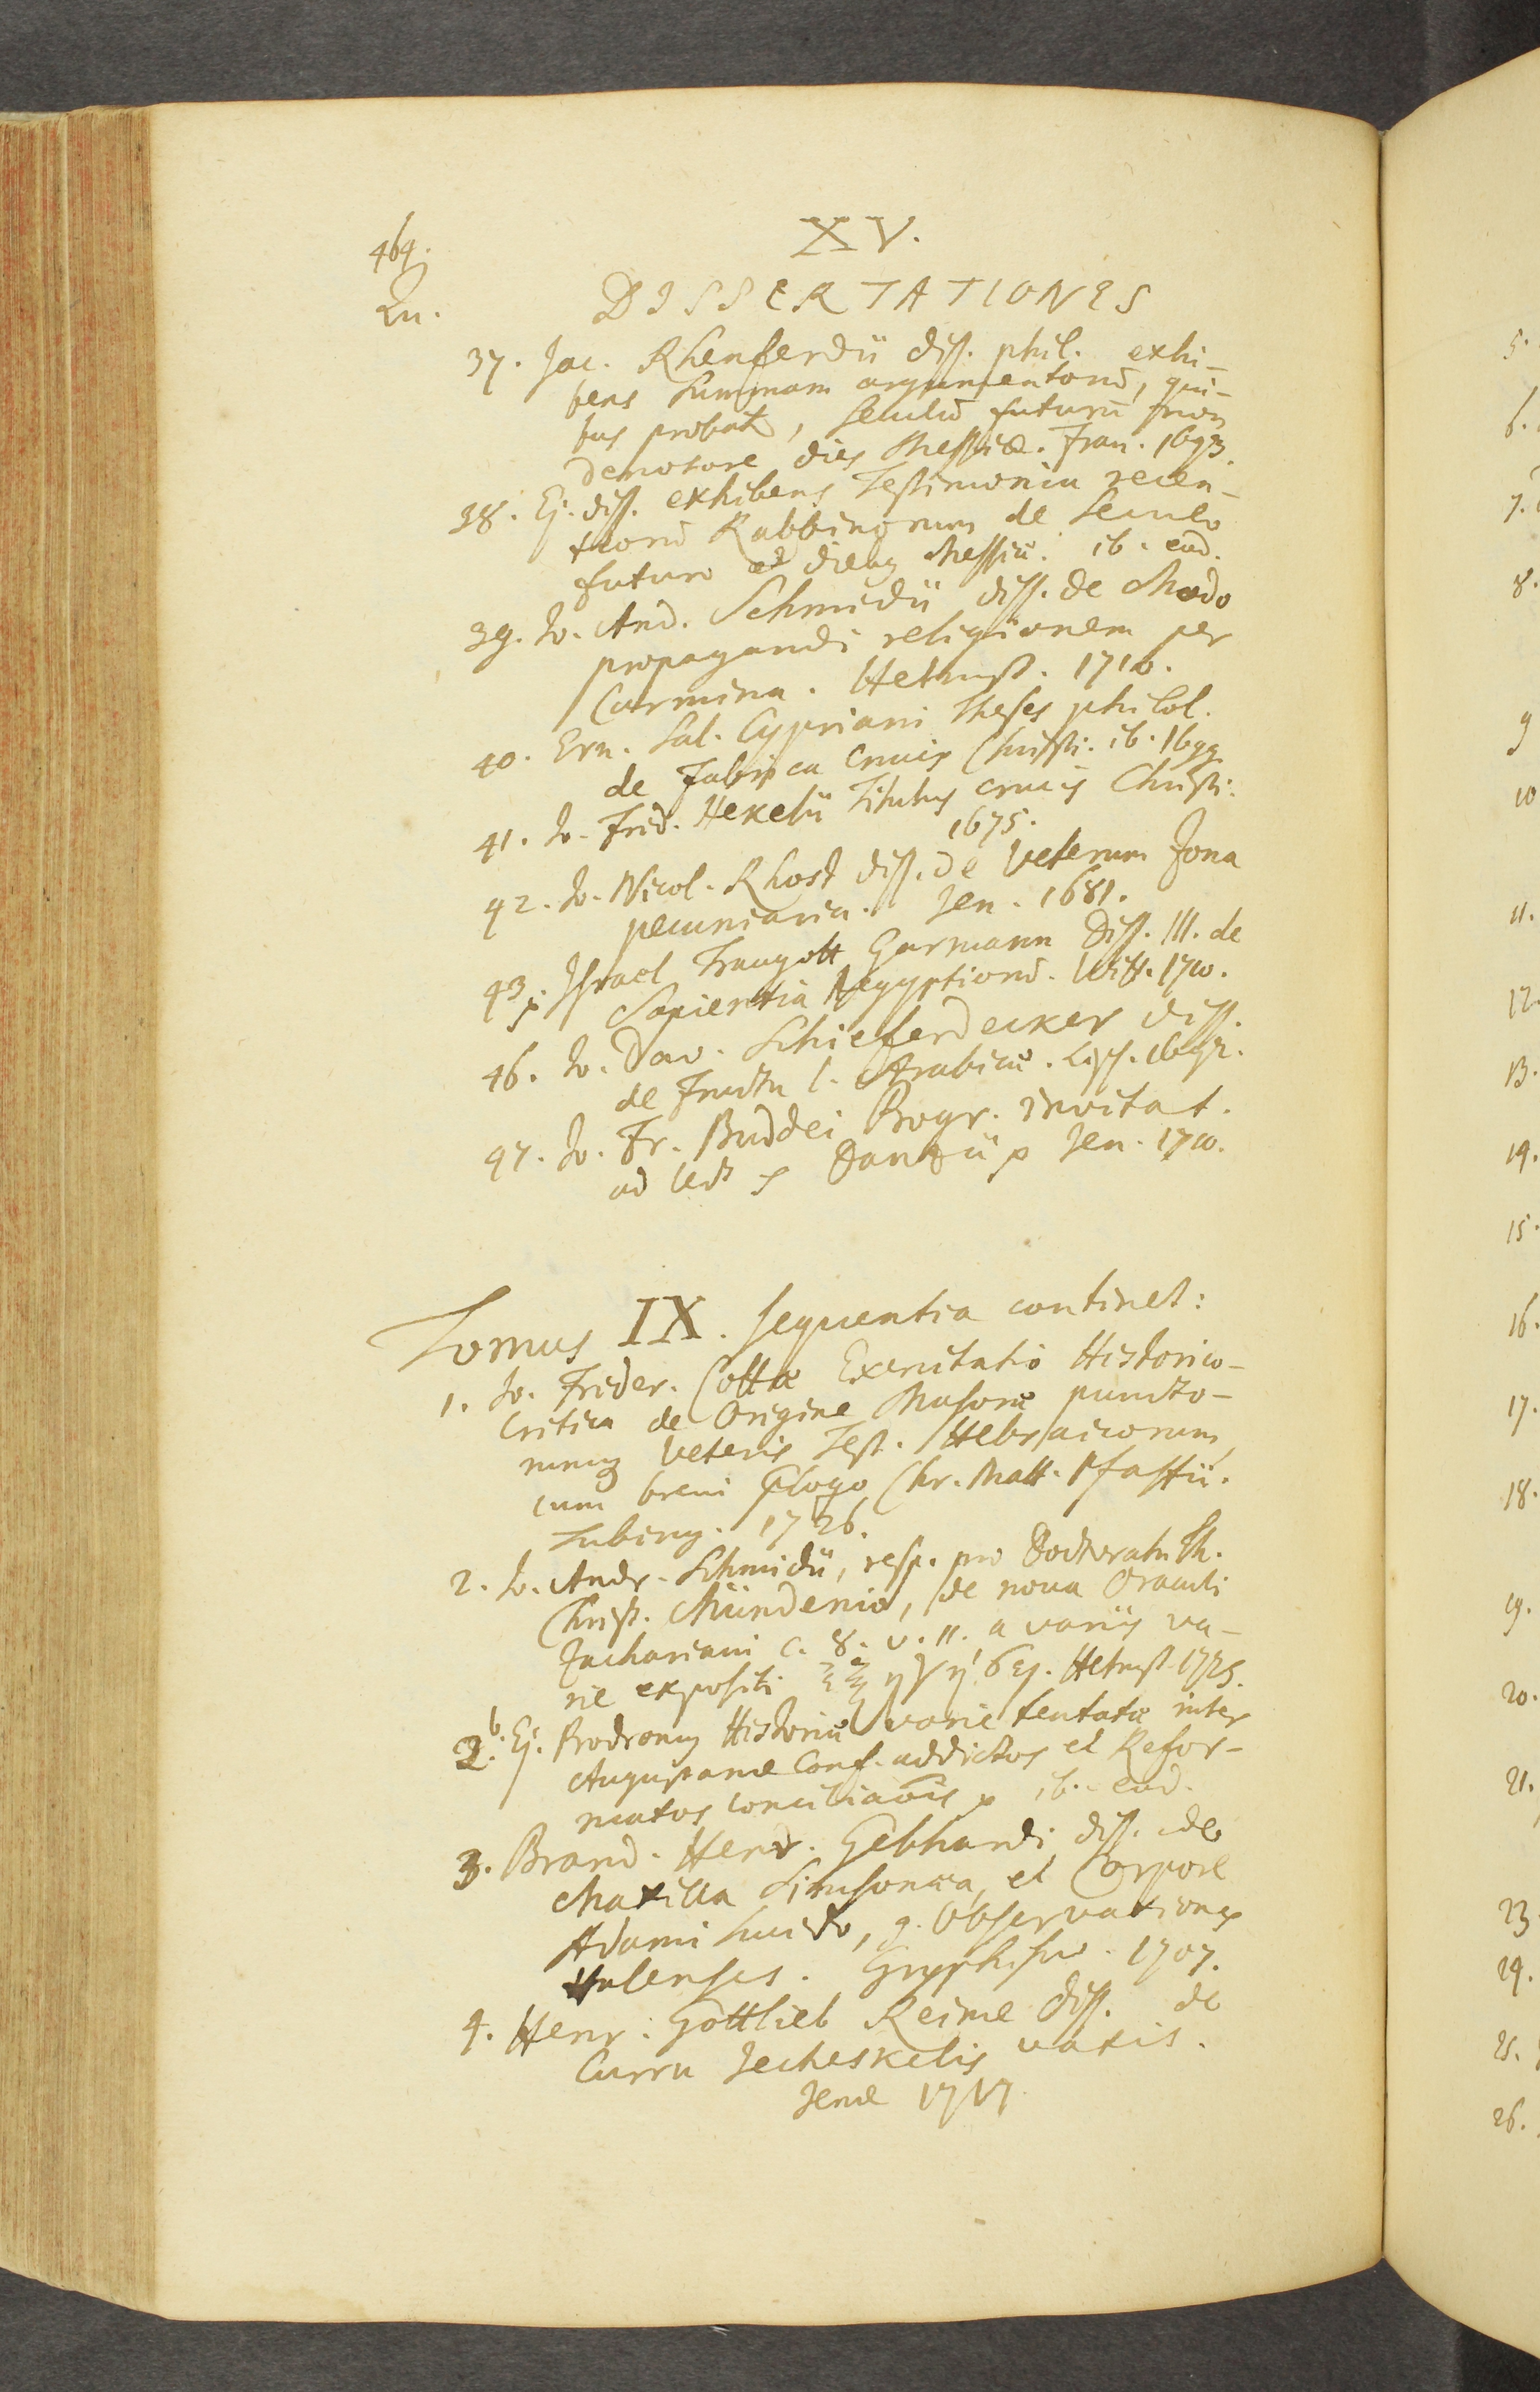 464.
XV.
Qu.
DISSERTATIONES
37. Jac. Rhenferdii diss. phil. exhi-
bens Summam argumentorū, qui-
bus probat, seculū futurū non
denotare dies Messiæ. Fran. 1693.
38. Ej. diss. exhibens Testimonia recen-
tiorū Rabbinorum de Seculo
futuro et diebus Messiæ. ib. eod.
39. Jo. And. Schmidii diss. de Modo
propagandi religionem per
Carmina. Helmst. 1710.
40. Ern. Sal. Cypriani Theses philol.
de Fabrica Crucis Christi. ib. 1699
41. Jo. Frid. Hekelii Titulus crucis Christi.
1675.
42. Jo. Nicol. Rhost diss. de Veterum Zona
pecuniaria. Jen. 1681.
43. Israel Traugott Garmann Diss. III. de
Sapientia Aegyptiorū. Witt. 1710.
46. Jo. Dav. Schieferdecker diss.
de Fructu l. Arabicæ. Lips. 1692.
47. Jo. Fr. Buddei Progr. invitat.
ad Danzii Jen. 1710.
Tomus IX. sequentia continet:
1. Jo. Frider. Cottæ Exercitatio Historico-
Critica de Origine Masoræ puncto-
rumq Veteris Test. Hebraicorum,
cum brevi Chr. Matt. Pfaffii.
Tubing. 1726.
2. Jo. Andr. Schmidii, resp. pro Doctoratu Th.
Christ. Mündenio, de nova Oraculi
Zachariani c. 8. v. 11. a variis va-
rie expositi Helmst. 1725.
2.b. Ej. Prodromus Historiæ varie tentatæ inter
Augustanæ Conf. addictos et Refor-
matos conciliaōis ib. eod.
3. Brand. Henr. Gebhardi diss. de
Maxilla Simsonæa, et Corpore
Adami lucido, g. Observationes
Gryphisw. 1707.
4. Henr. Gottlieb Reime diss. de
Curru Jecheskelis vatis.
Jenæ 1717
5.
6.
7.
8.
9
10
11.
12.
13.
14.
15.
16.
17.
18.
19.
20.
21.
23.
24.
25.
26.